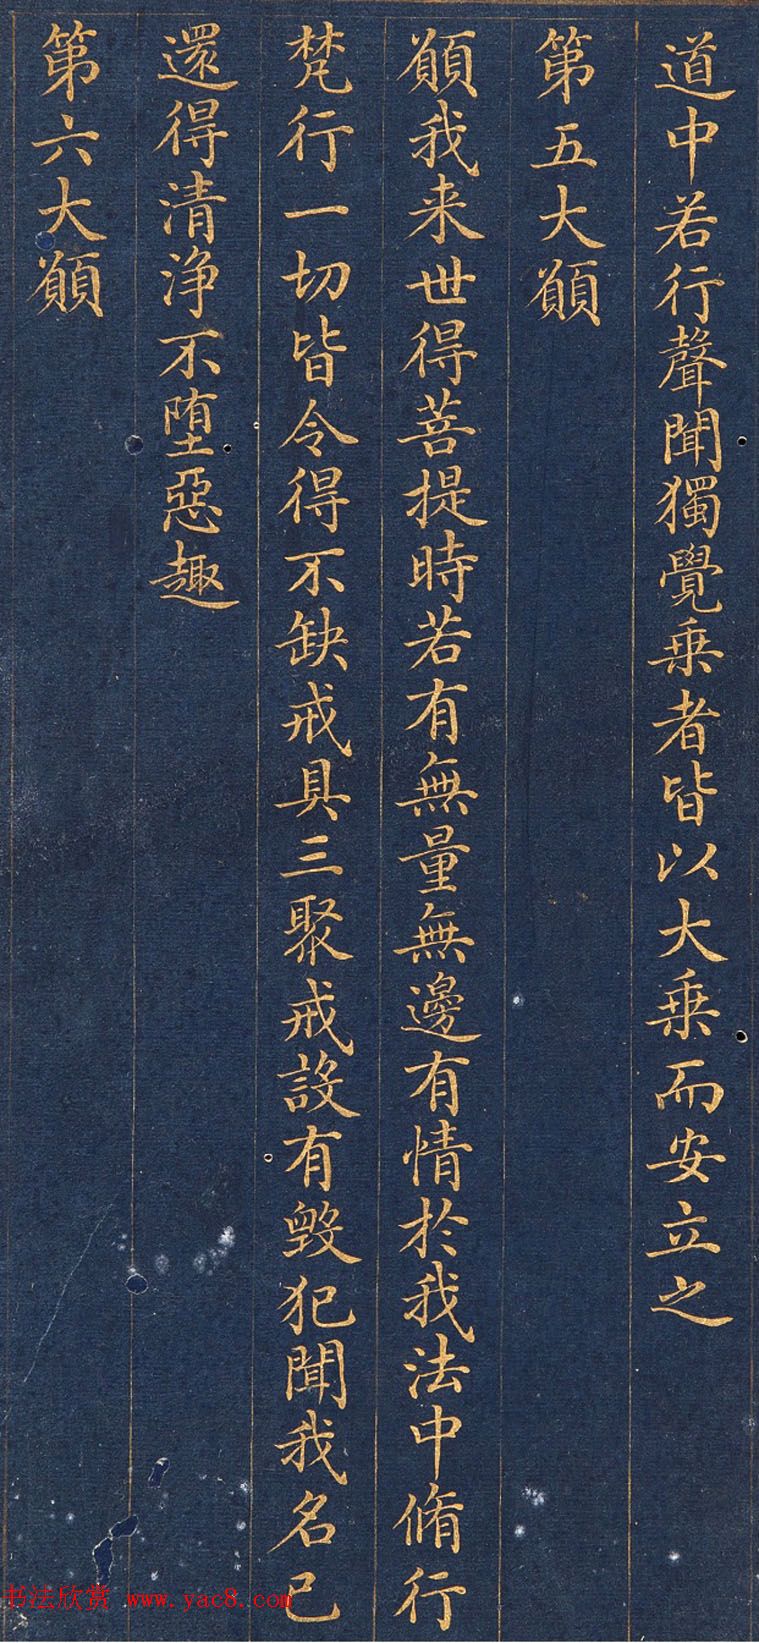 道中若行聲聞獨覺乗者皆以大乗而安立之
第五大願
願我来世得菩提時若有無量無邊有情於我法中脩行
梵行一切皆令得不缺戒具三聚戒設有毀犯聞我名已
還得清浄不堕惡趣
第六大願
书法欣赏 www.yac8.com